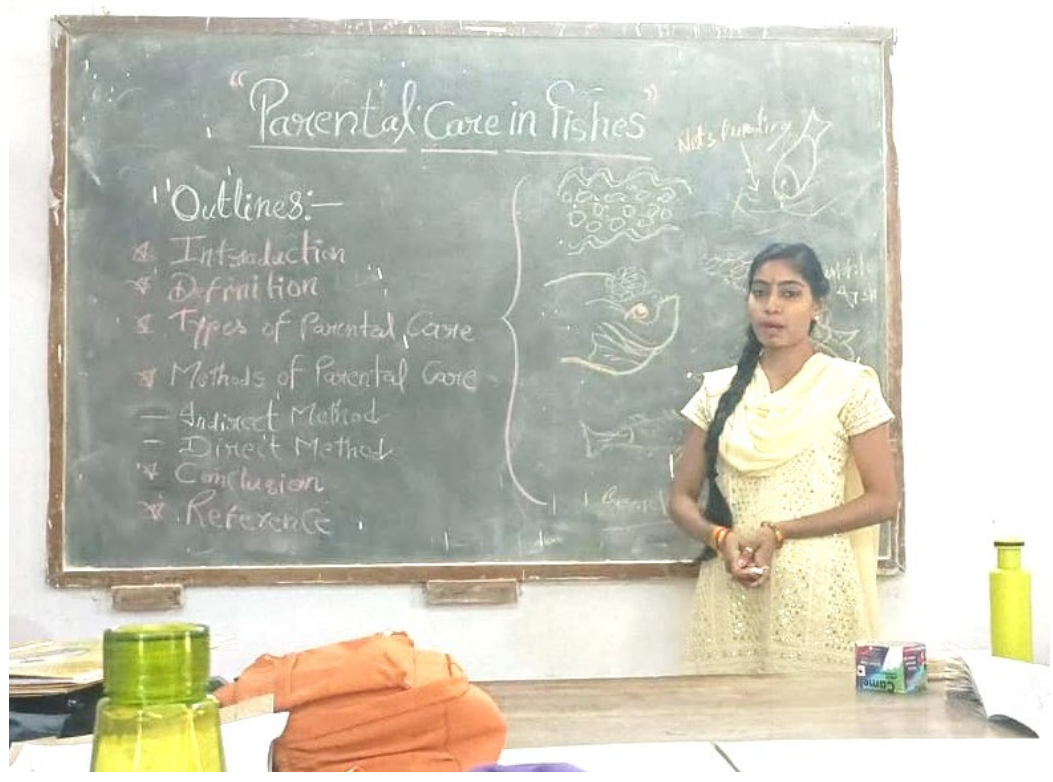 "Parental Care in Fishes"
"Outlines:-
Introduction
Definition
Types of Parental Care
Methods of Parental Care
- Indirect Method
- Direct Method
Conclusion
Reference
Camel